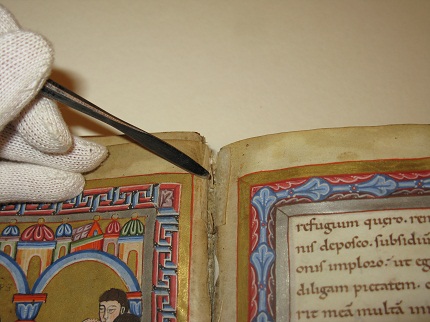 refugium quęro. rem
nis deposco. subsidiū
onis imploro. ut eg
diligam pietatem. e
rit meā multā im